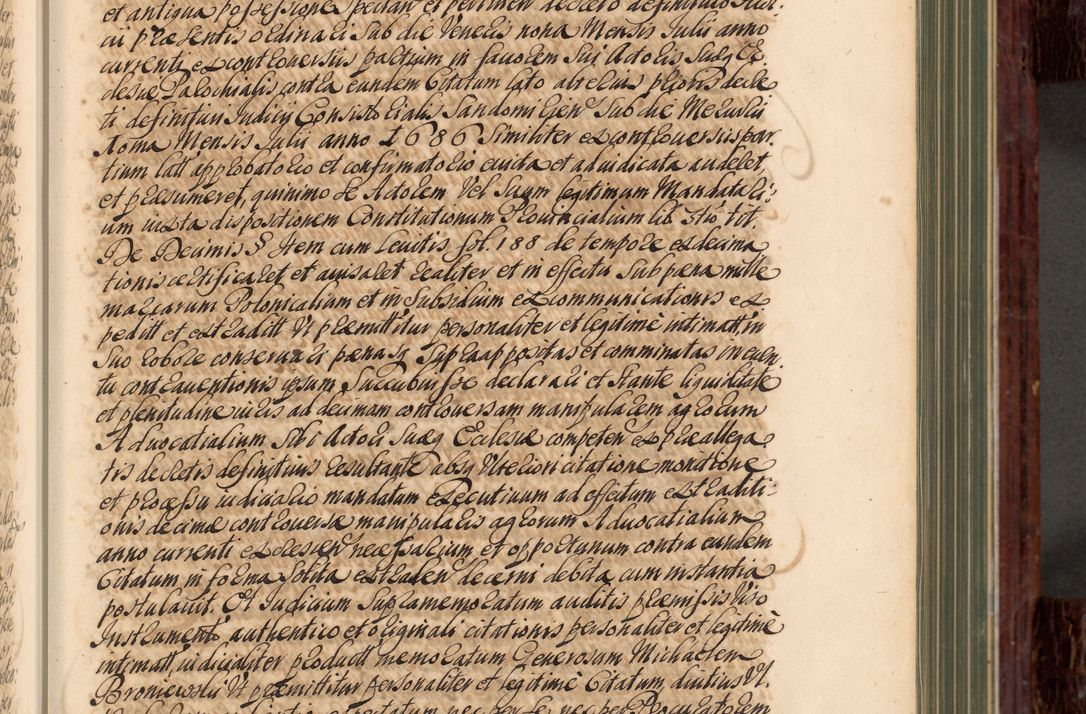 et antiqua possessione spectan et pertinen decreto definitivo Iudi
cii præsentis ordinarii sub die Veneris nona Mensis Iulii anno
currenti ex controversiis partium in favorem sui Actoris suæq Ec
clesiæ Parochialis contra eundem Citatum lato alterius prioris decre
ti definitivi Iudicii Consistorialis Sandomirien sub die Mercurii
Mensis Iulii anno 1686 similiter ex controversiis par
tium latt approbatorio et confirmatorio evicta et adiudicata auderet,
et præsumeret, quinimo se Actorem vel suum legitimum Mandatari
um iuxta dispositionem Constitutionum Provincialium lib. 3tio tit.
De Decimis § Item cum Levitis fol. 188 de tempore exdecima
tionis certificaret et avisaret realiter et in effectu sub pæna mille
marcarum Polonicalium et in subsidium excommunicationis ex
peditt et extraditt Vt præmittitur personaliter et legitimè intimatt, in
suo robore conservari pænasq supra appositas et comminatas incur
tu contraventionis ipsum succubuisse declarari et stante liquiditate
et plenitudine iuris ad decimam controversam manipularem agrorum
Advocatialium sibi Actori suæq Ecclesiæ competen ex præallega
tis decretis definitivis resultante absq vlteriori citatione monitione
et processu iudiciario mandatum executivum ad effectum extraditi
onis decimæ controversæ manipularis agrorum Advocatialium
anno currenti excrescen necessarium et opportunum contra eundem
Citatum in forma solita extraden decerni debita cum instantia
postulavit. Et Iudicium supramemoratum auditis præmissis viso
Instrumento authentico et originali citationis personaliter et legitimè
intimatt, iudicialiter product memoratum Generosum Michaelem
Broniewski Vt præmittitur personaliter et legitimè Citatum, diutius Vt.